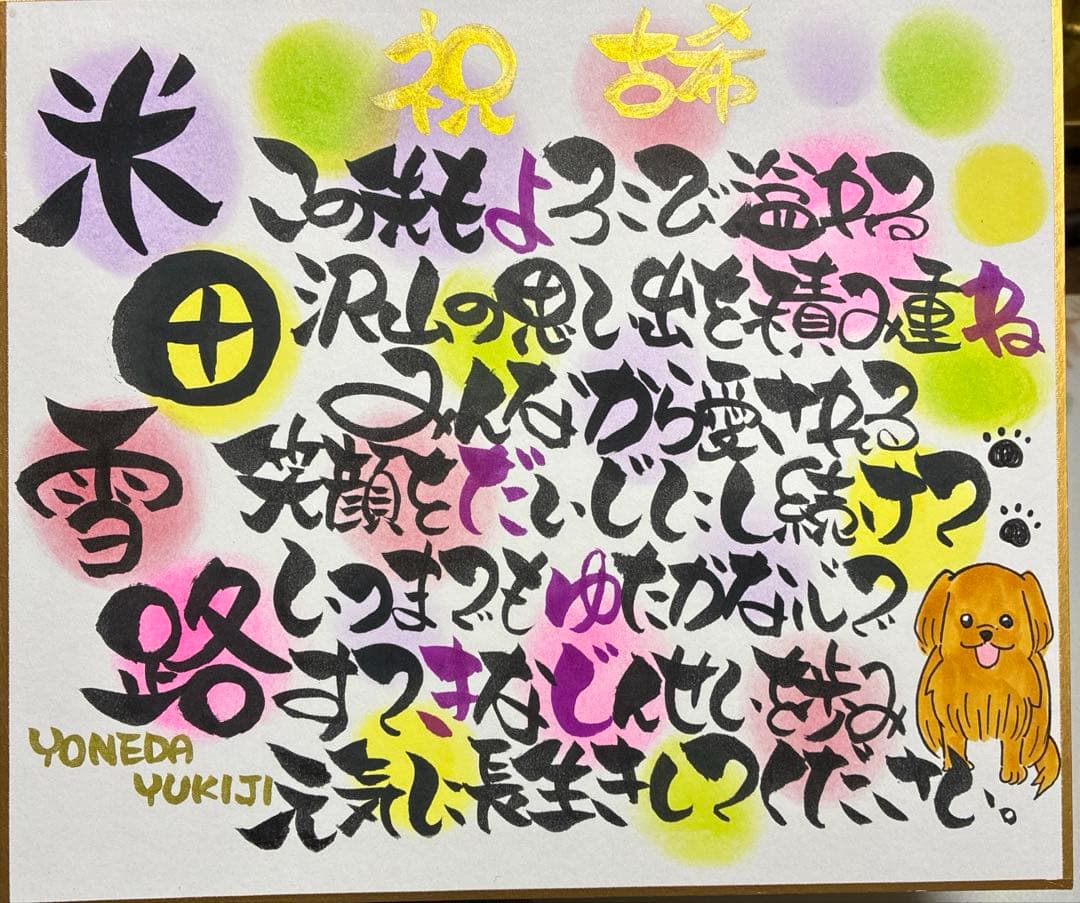 祝 古希
米田雪路
この先もよろこび溢れる
沢山の思い出を積み重ね
みんなから愛される
笑顔をだいじにし続けて
いつまでもゆたかな心で
すてきなじんせいを歩み
元気に長生きしてください。
YONEDA
YUKIJI